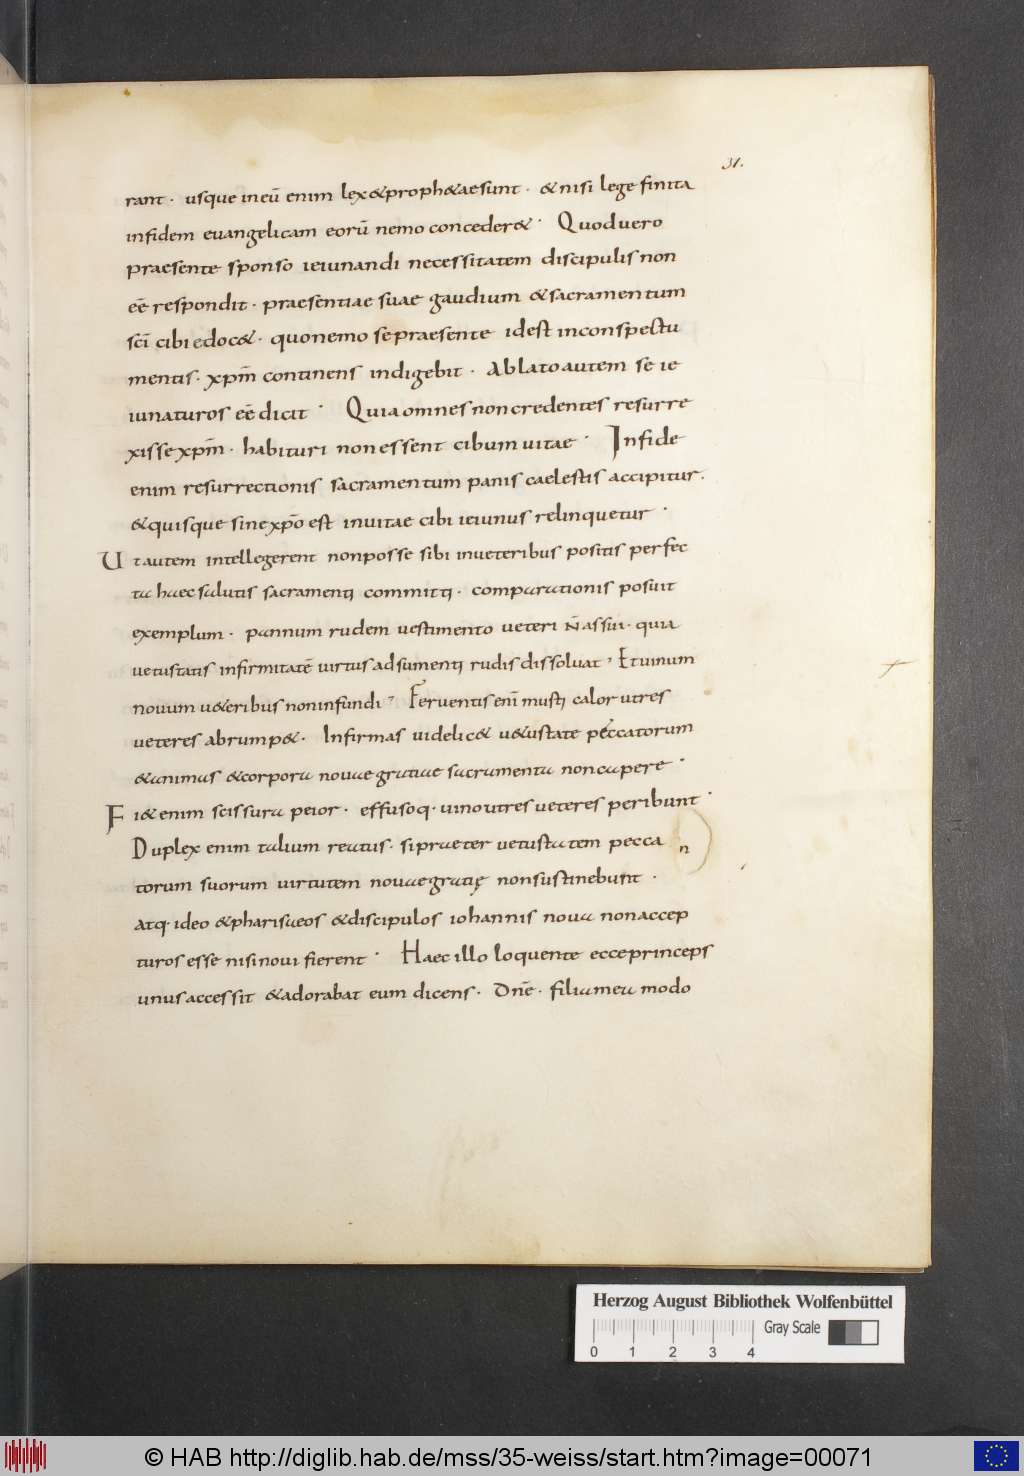 31.
rant · usque in eū enim lex & proph&ae sunt · & nisi lege finita
in fidem euangelicam eorū nemo conceder& · Quod uero
praesente sponso ieiunandi necessitatem discipulis non
eē respondit · praesentiae suae gaudium & sacramentum
scī cibi edoc& · quo nemo se praesente id est in conspectu
mentis · xpm̄ continens indigebit · Ablato autem se ie
iunaturos eē dicit · Quia omnes non credentes resurre
xisse xpm̄ · habituri non essent cibum uitae · In fide
enim resurrectionis sacramentum panis caelestis accipitur ·
& quisque sine xpō est in uitae cibi ieiunus relinquetur ·
Ut autem intellegerent non posse sibi in ueteribus positis perfec
ta haec salutis sacramenti committi · comparationis posuit
exemplum · pannum rudem uestimento ueteri n̄ assui · quia
uetustatis infirmitatē uirtus adsumenti rudis dissoluat · Et uinum
nouum u&eribus non infundi · Feruentis enī musti calor utres
ueteres abrump& · Infirmas uidelic& u&ustate peccatorum
& animas & corpora nouae gratiae sacramenta non capere ·
Fi& enim scissura peior · effusoq· uino utres ueteres peribunt ·
Duplex enim talium reatus · si praeter uetustatem pecca
n
torum suorum uirtutem nouae gratię non sustinebunt ·
atq· ideo & pharisaeos & discipulos iohannis noua non accep
turos esse nisi noui fierent · Haec illo loquente ecce princeps
unus accessit & adorabat eum dicens · Dnē · filia mea modo
Herzog August Bibliothek Wolfenbüttel
Gray Scale
0 1 2 3 4
© HAB http://diglib.hab.de/mss/35-weiss/start.htm?image=00071